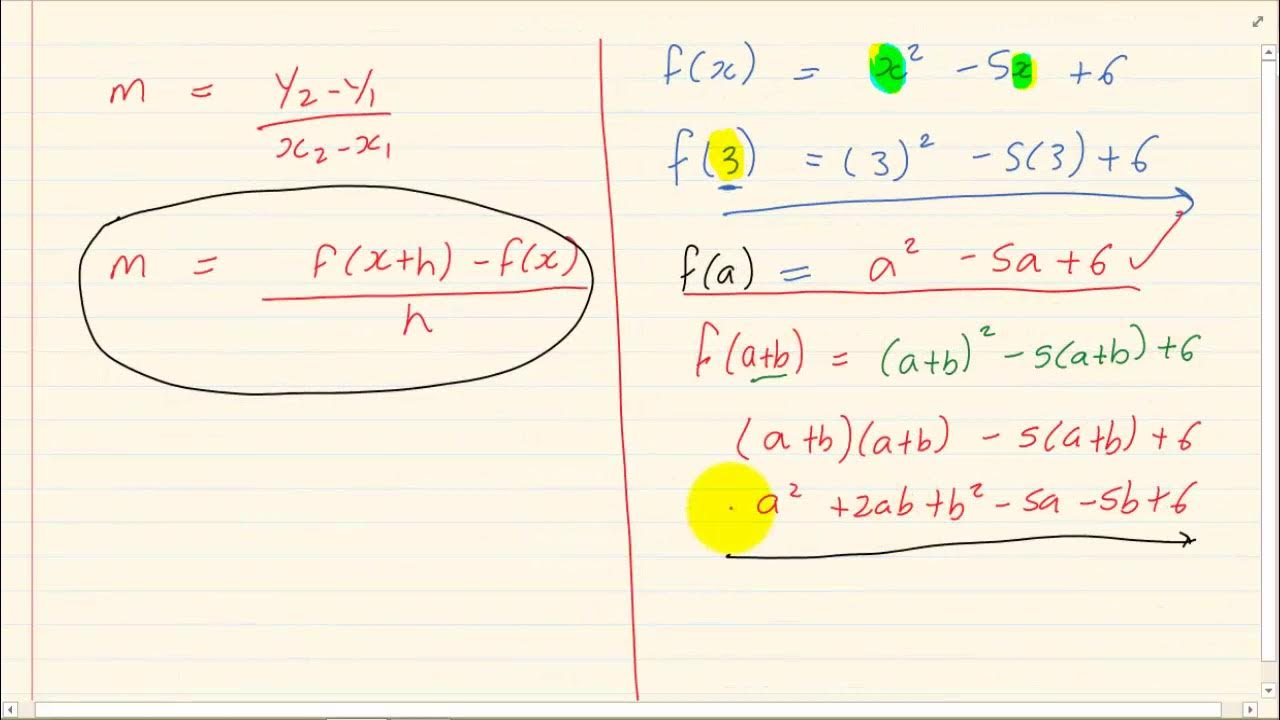 m = y₂ - y₁ / x₂ - x₁
m = f(x+h) - f(x) / h
f(x) = x² - 5x + 6
f(3) = (3)² - 5(3) + 6
f(a) = a² - 5a + 6 ✓
f(a+b) = (a+b)² - 5(a+b) + 6
(a+b)(a+b) - 5(a+b) + 6
a² + 2ab + b² - 5a - 5b + 6